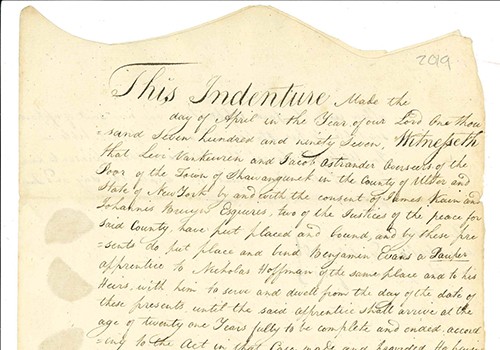 2019
This Indenture Make the
day of April in the Year of our Lord One thou
=sand Seven hundred and ninety Seven, Witnesseth
that Levi VanKeuren and Jacob Ostrander Overseers of the
Poor of the Town of Shawangunck in the County of Ulster and
State of New York by and with the consent of James Kain and
Johannis Bruyn Esquires, two of the Justices of the peace for
said County, have put placed and bound, and by these pre
=sents do put place and bind Benjamen Evans a Pauper
apprentice to Nicholas Hoffman of the same place and to his
Heirs, with him to serve and dwell from the day of the date of
these presents, until the said apprentice shall arrive at the
age of twenty one Years fully to be complete and ended. accord
=ing to the Act in that Case made and provided